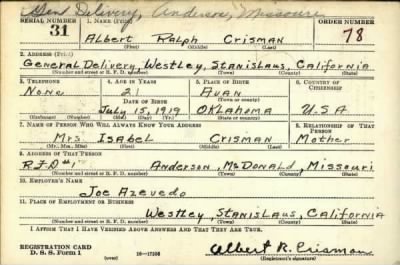 Gen Delivery, Anderson, Missouri
SERIAL NUMBER 1. NAME (Print) ORDER NUMBER
31 Albert Ralph Crisman 78
(First) (Middle) (Last)
2. ADDRESS (Print)
General Delivery, Westley, Stanislaus, California
(Number and street or R. F. D. number) (Town) (County) (State)
3. TELEPHONE 4. AGE IN YEARS 5. PLACE OF BIRTH 6. COUNTRY OF CITIZENSHIP
None 21 Avan
DATE OF BIRTH (Town or county)
July 15, 1919 Oklahoma U.S.A
(Exchange) (No.) (Mo.) (Day) (Yr.) (State or country)
7. NAME OF PERSON WHO WILL ALWAYS KNOW YOUR ADDRESS 8. RELATIONSHIP OF THAT PERSON
Mrs. Isabel Crisman Mother
(Mr., Mrs., Miss) (First) (Middle) (Last)
9. ADDRESS OF THAT PERSON
Anderson, McDonald, Missouri
(Number and street or R. F. D. number) (Town) (County) (State)
10. EMPLOYER'S NAME
Joe Azevedo
11. PLACE OF EMPLOYMENT OR BUSINESS
Westley, Stanislaus, California
(Number and street or R. F. D. number) (Town) (County) (State)
I AFFIRM THAT I HAVE VERIFIED ABOVE ANSWERS AND THAT THEY ARE TRUE.
REGISTRATION CARD
D. S. S. Form 1 (over) Albert R. Crisman
(Registrant's signature)